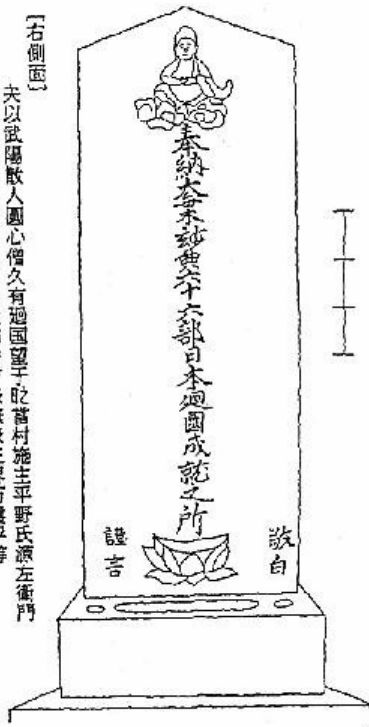 奉納大乗玅典六十六部日本廻國成就之所
敬白
謹言
〔右側面〕
夫以武陽散人圓心僧久有廻国望于當村施主平野氏源左衛門